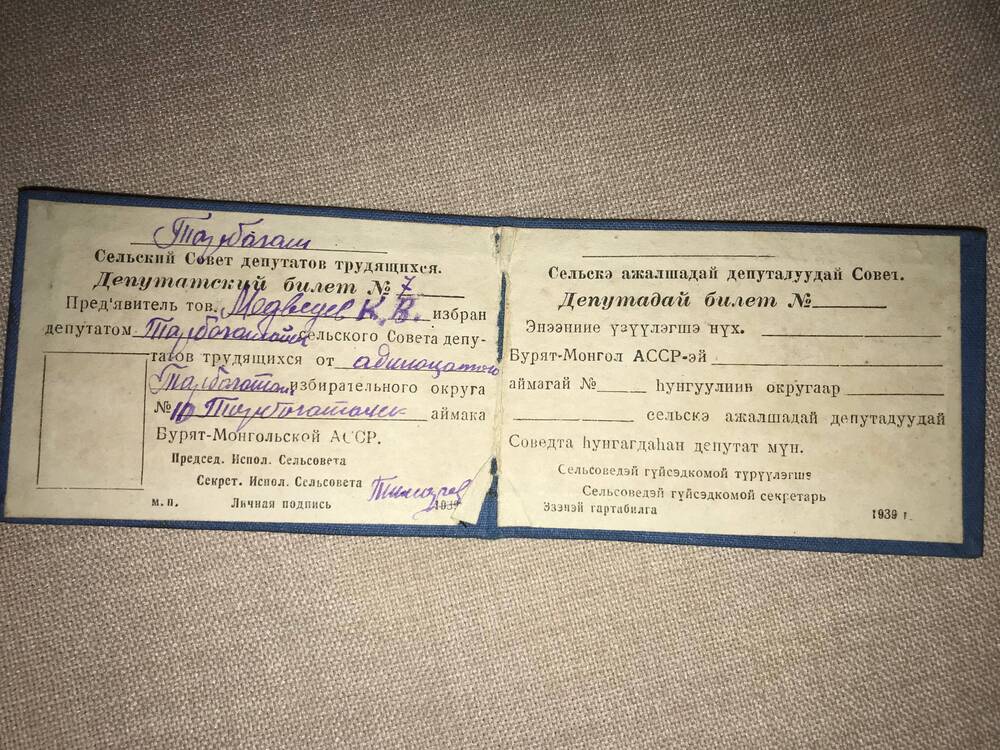 Тарбогат
Сельский Совет депутатов трудящихся.
Депутатский билет № 7
Пред'явитель тов. Медведев К. В. избран
депутатом сельского Совета депу-
татов трудящихся от
избирательного округа
№ аймака
Бурят-Монгольской АССР.
Председ. Испол. Сельсовета
Секрет. Испол. Сельсовета
м. п. Личная подпись 1939
Сельскэ ажалшадай депуталуудай Совет.
Депутадай билет №
Энээниие үзүүлэгшэ нүх.
Бурят-Монгол АССР-эй
аймагай № һунгуулиин округаар
сельскэ ажалшадай депутадуудай
Советдa һунгагдаһан депутат мүн.
Сельсоведэй гүйсэдкомой түрүүлэгшэ
Сельсоведэй гүйсэдкомой секретарь
Эзэнэй гартабилга 1939 г.